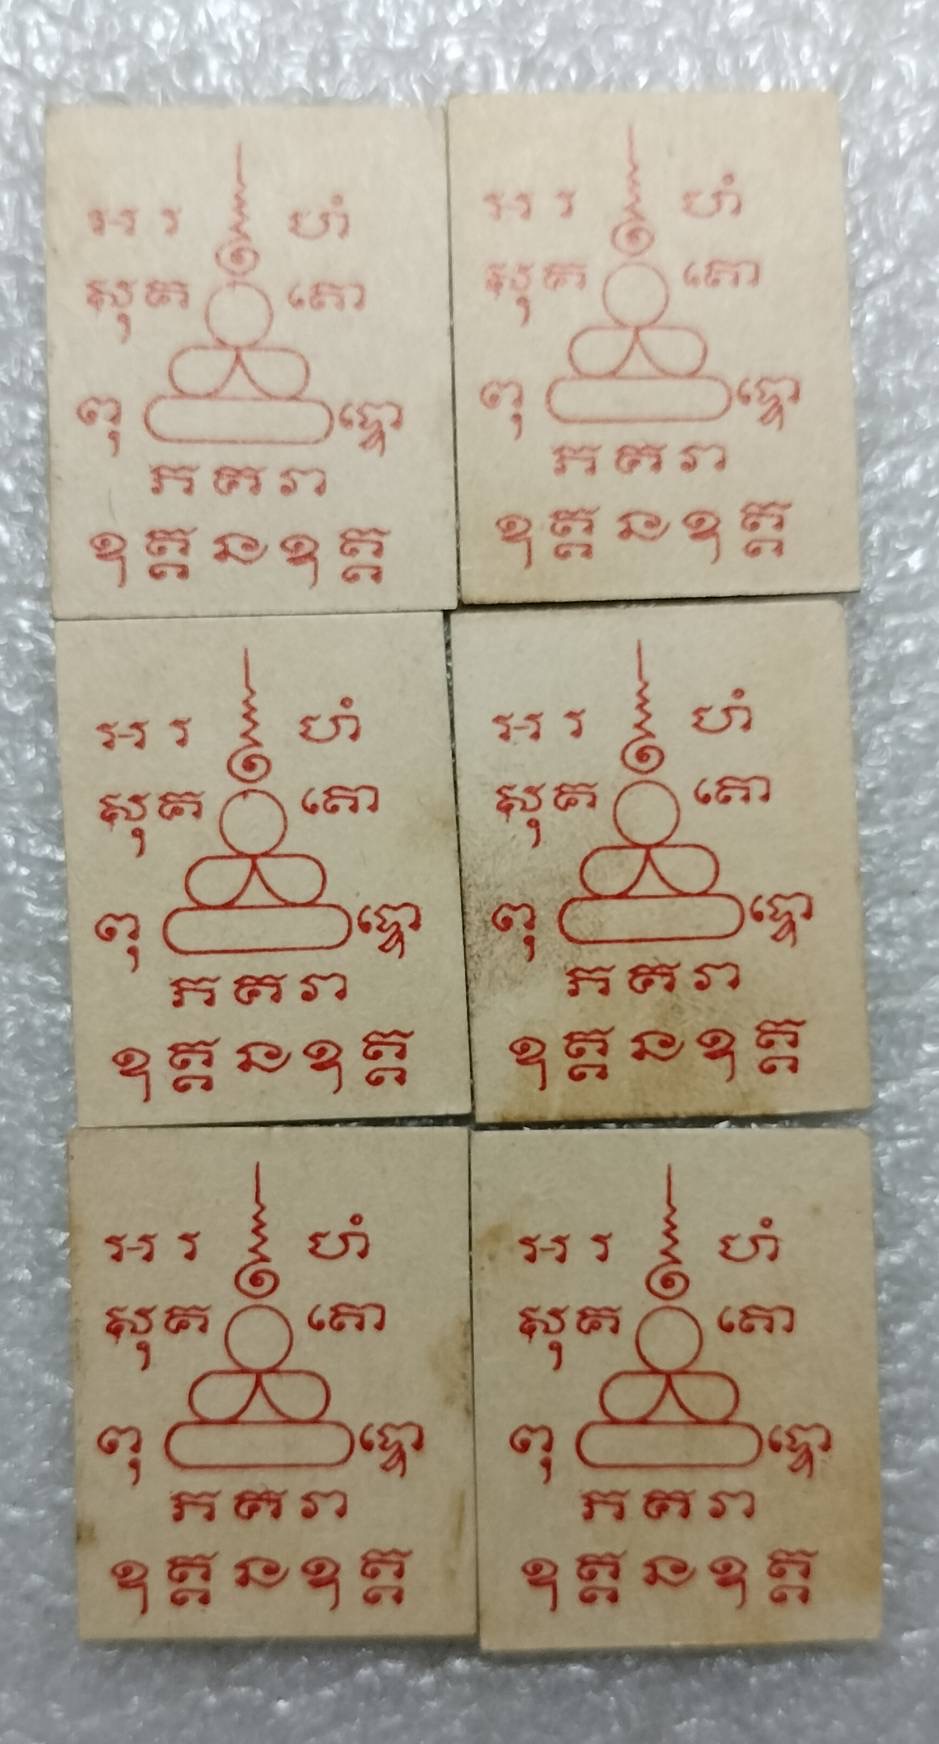 អ រ ហំ អ រ ហំ
សុ គ តោ សុ គ តោ
ពុ ទ្ធោ ពុ ទ្ធោ
ភ គ វា ភ គ វា
ឧ ត្ត ន ឧ ត្ត ឧ ត្ត ន ឧ ត្ត
អ រ ហំ អ រ ហំ
សុ គ តោ សុ គ តោ
ពុ ទ្ធោ ពុ ទ្ធោ
ភ គ វា ភ គ វា
ឧ ត្ត ន ឧ ត្ត ឧ ត្ត ន ឧ ត្ត
អ រ ហំ អ រ ហំ
សុ គ តោ សុ គ តោ
ពុ ទ្ធោ ពុ ទ្ធោ
ភ គ វា ភ គ វា
ឧ ត្ត ន ឧ ត្ត ឧ ត្ត ន ឧ ត្ត